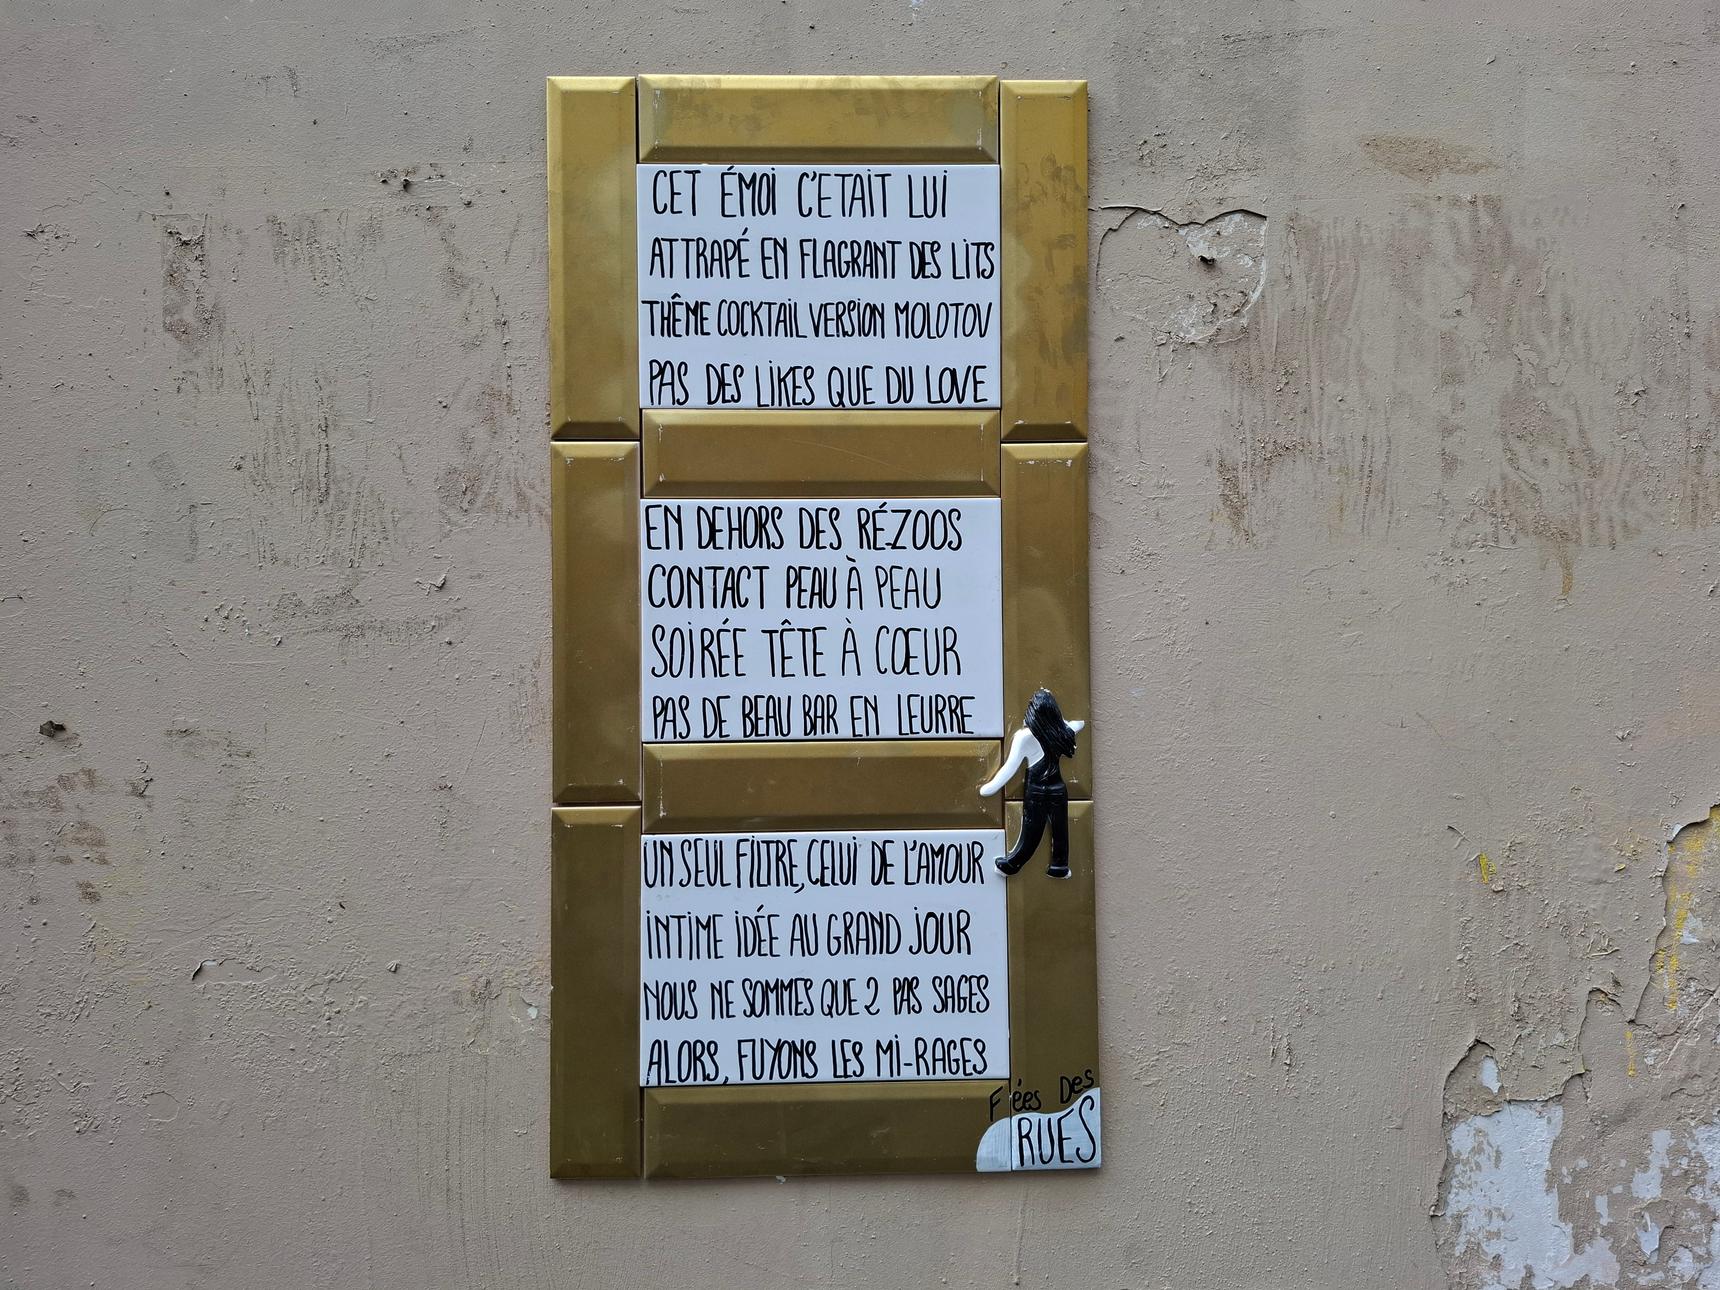 CET ÉMOI C'ETAIT LUI
ATTRAPÉ EN FLAGRANT DES LITS
THÊME COCKTAIL VERSION MOLOTOV
PAS DES LIKES QUE DU LOVE
EN DEHORS DES RÉZOOS
CONTACT PEAU À PEAU
SOIRÉE TÊTE À CŒUR
PAS DE BEAU BAR EN LEURRE
UN SEUL FILTRE, CELUI DE L'AMOUR
INTIME IDÉE AU GRAND JOUR
NOUS NE SOMMES QUE 2 PAS SAGES
ALORS, FUYONS LES MI-RAGES
Fées Des
RUES